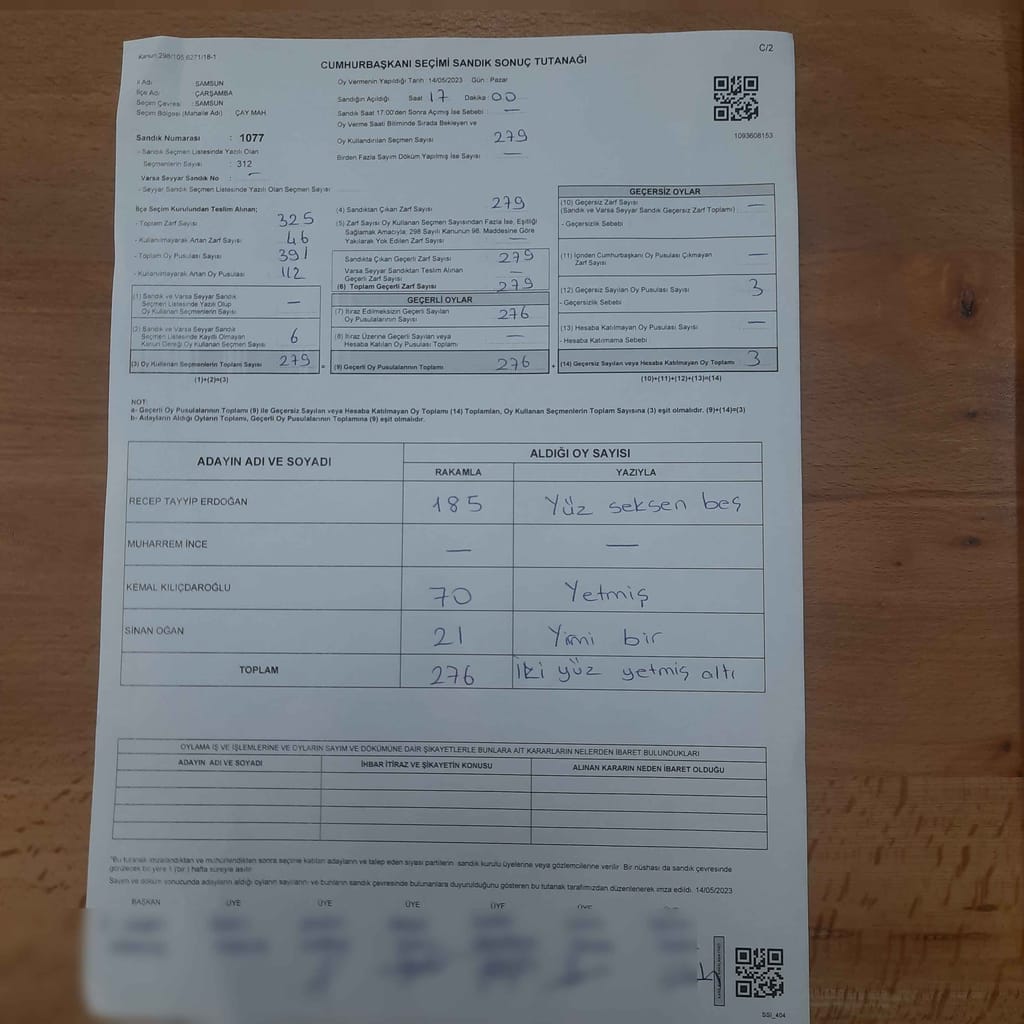 Kanun:298/105,6271/18-1
C/2
CUMHURBAŞKANI SEÇİMİ SANDIK SONUÇ TUTANAĞI
İl Adı : SAMSUN
İlçe Adı : ÇARŞAMBA
Seçim Çevresi : SAMSUN
Seçim Bölgesi (Mahalle Adı) ÇAY MAH
Sandık Numarası : 1077
- Sandık Seçmen Listesinde Yazılı Olan
Seçmenlerin Sayısı : 312
Varsa Seyyar Sandık No : —
- Seyyar Sandık Seçmen Listesinde Yazılı Olan Seçmen Sayısı
Oy Vermenin Yapıldığı Tarih :14/05/2023 Gün : Pazar
Sandığın Açıldığı Saat 17 Dakika 00
Sandık Saat 17:00'den Sonra Açılmış İse Sebebi : —
Oy Verme Saati Bitiminde Sırada Bekleyen ve
Oy Kullandırılan Seçmen Sayısı 279
Birden Fazla Sayım Döküm Yapılmış İse Sayısı —
1093608153
İlçe Seçim Kurulundan Teslim Alınan;
- Toplam Zarf Sayısı 325
- Kullanılmayarak Artan Zarf Sayısı 46
- Toplam Oy Pusulası Sayısı 391
- Kullanılmayarak Artan Oy Pusulası 112
(1) Sandık ve Varsa Seyyar Sandık
Seçmen Listesinde Yazılı Olup
Oy Kullanan Seçmenlerin Sayısı —
(2) Sandık ve Varsa Seyyar Sandık
Seçmen Listesinde Kayıtlı Olmayan
Kanun Gereği Oy Kullanan Seçmen Sayısı 6
(3) Oy Kullanan Seçmenlerin Toplam Sayısı 279
(1)+(2)=(3)
(4) Sandıktan Çıkan Zarf Sayısı 279
(5) Zarf Sayısı Oy Kullanan Seçmen Sayısından Fazla İse, Eşitliği
Sağlamak Amacıyla; 298 Sayılı Kanunun 98. Maddesine Göre
Yakılarak Yok Edilen Zarf Sayısı —
Sandıkta Çıkan Geçerli Zarf Sayısı 279
Varsa Seyyar Sandıktan Teslim Alınan
Geçerli Zarf Sayısı —
(6) Toplam Geçerli Zarf Sayısı 279
GEÇERLİ OYLAR
(7) İtiraz Edilmeksizin Geçerli Sayılan
Oy Pusulalarının Sayısı 276
(8) İtiraz Üzerine Geçerli Sayılan veya
Hesaba Katılan Oy Pusulası Toplamı —
= (9) Geçerli Oy Pusulalarının Toplamı 276
GEÇERSİZ OYLAR
(10) Geçersiz Zarf Sayısı —
(Sandık ve Varsa Seyyar Sandık Geçersiz Zarf Toplamı)
- Geçersizlik Sebebi
(11) İçinden Cumhurbaşkanı Oy Pusulası Çıkmayan
Zarf Sayısı —
(12) Geçersiz Sayılan Oy Pusulası Sayısı 3
- Geçersizlik Sebebi
(13) Hesaba Katılmayan Oy Pusulası Sayısı —
- Hesaba Katılmama Sebebi
+ (14) Geçersiz Sayılan veya Hesaba Katılmayan Oy Toplamı 3
(10)+(11)+(12)+(13)=(14)
NOT:
a- Geçerli Oy Pusulalarının Toplamı (9) ile Geçersiz Sayılan veya Hesaba Katılmayan Oy Toplamı (14) Toplamları, Oy Kullanan Seçmenlerin Toplam Sayısına (3) eşit olmalıdır. (9)+(14)=(3)
b- Adayların Aldığı Oyların Toplamı, Geçerli Oy Pusulalarının Toplamına (9) eşit olmalıdır.
ADAYIN ADI VE SOYADI
ALDIĞI OY SAYISI
RAKAMLA YAZIYLA
RECEP TAYYİP ERDOĞAN 185 Yüz seksen beş
MUHARREM İNCE — —
KEMAL KILIÇDAROĞLU 70 Yetmiş
SİNAN OĞAN 21 Yimi bir
TOPLAM 276 İki yüz yetmiş altı
OYLAMA İŞ VE İŞLEMLERİNE VE OYLARIN SAYIM VE DÖKÜMÜNE DAİR ŞİKAYETLERLE BUNLARA AİT KARARLARIN NELERDEN İBARET BULUNDUKLARI
ADAYIN ADI VE SOYADI İHBAR İTİRAZ VE ŞİKAYETİN KONUSU ALINAN KARARIN NEDEN İBARET OLDUĞU
"Bu tutanak imzalandıktan ve mühürlendikten sonra seçime katılan adayların ve talep eden siyasi partilerin sandık kurulu üyelerine veya gözlemcilerine verilir. Bir nüshası da sandık çevresinde
görülecek bir yere 1 (bir) hafta süreyle asılır.
Sayım ve döküm sonucunda adayların aldığı oyların sayılarını ve bunların sandık çevresinde bulunanlara duyurulduğunu gösteren bu tutanak tarafımızdan düzenlenerek imza edildi. 14/05/2023
BAŞKAN ÜYE ÜYE ÜYE ÜYE ÜYE
SSİ_404